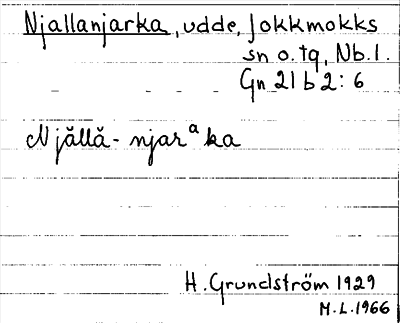 Njallanjarka, udde, Jokkmokks
sn o. tg, Nb. l.
Gn 21 b 2: 6
Njållå-njarᵃka
H. Grundström 1929
M.L. 1966